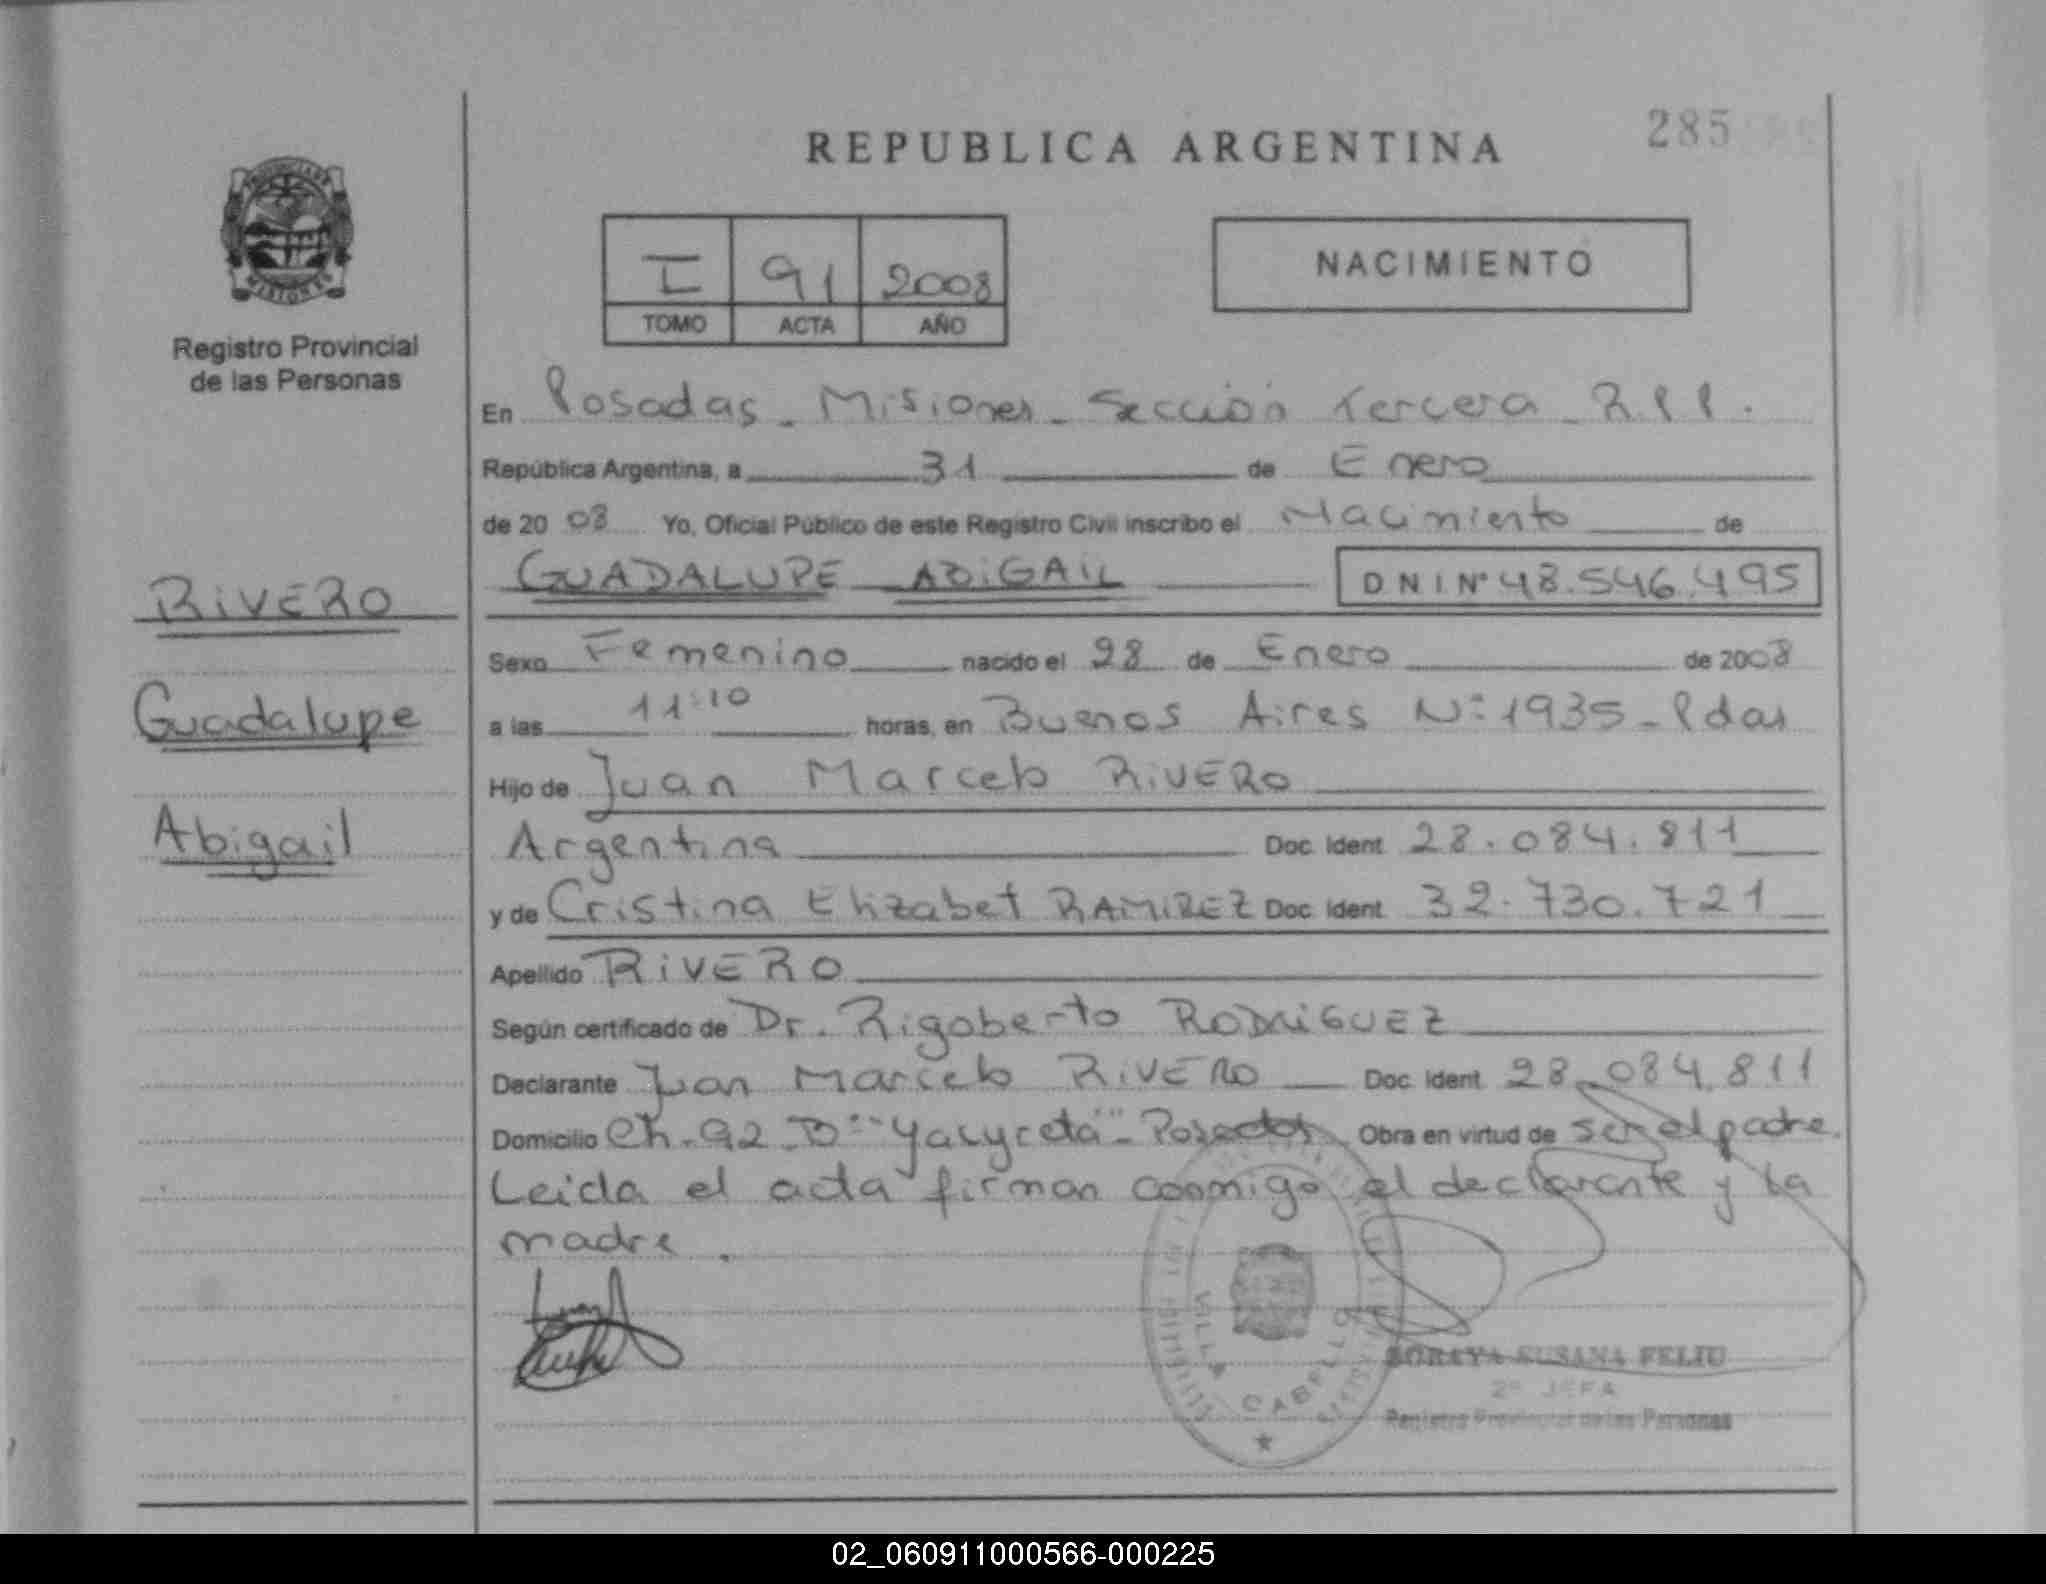 REPUBLICA ARGENTINA
285
PROVINCIA DE
MISIONES
Registro Provincial
de las Personas
I 91 2008
TOMO ACTA AÑO
NACIMIENTO
En Posadas - Misiones - Sección Tercera - R.P.P.
República Argentina, a 31 de Enero
de 2008 Yo, Oficial Público de este Registro Civil inscribo el Nacimiento de
GUADALUPE ABIGAIL DNI Nº 48.546.495
RIVERO
Guadalupe
Abigail
Sexo Femenino nacido el 28 de Enero de 2008
a las 11:10 horas, en Buenos Aires Nº 1935 - Pdas
Hijo de Juan Marcelo RIVERO
Argentina Doc. Ident. 28.084.811
y de Cristina Elizabet RAMIREZ Doc. Ident. 32.730.721
Apellido RIVERO
Según certificado de Dr. Rigoberto RODRIGUEZ
Declarante Juan Marcelo RIVERO Doc. Ident. 28.084.811
Domicilio Ch. 92 Bº "Yacyreta" - Posadas Obra en virtud de ser el padre.
Leida el acta firman conmigo el declarante y la
madre.
VILLA CABELLO
SORAYA SUSANA FELIU
2º JEFA
Registro Provincial de las Personas
02_060911000566-000225